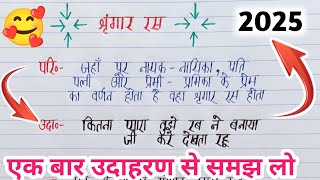 श्रृंगार रस
2025
परि०- जहाँ पर नायक-नायिका, पति
पत्नी और प्रेमी-प्रेमिका के प्रेम
का वर्णन होता है वहा श्रृंगार रस होता
उदा०- कितना प्यारा तुझे रब ने बनाया
जी करे देखता रहू
एक बार उदाहरण से समझ लो